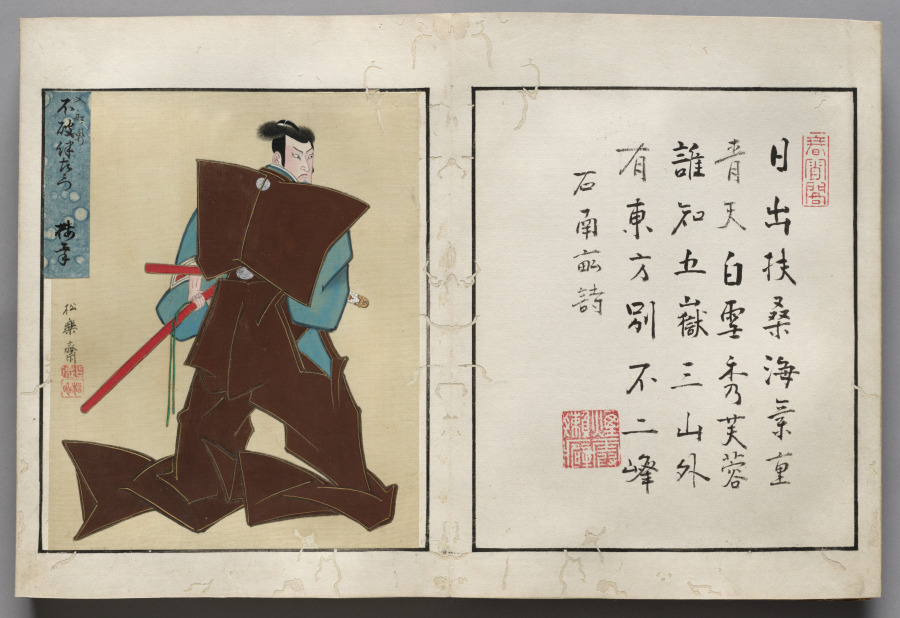 日出扶桑海氣重
青天白雪秀芙蓉
誰知五嶽三山外
有東方別不二峰
不破伴左衛門
梅幸
松樂齋